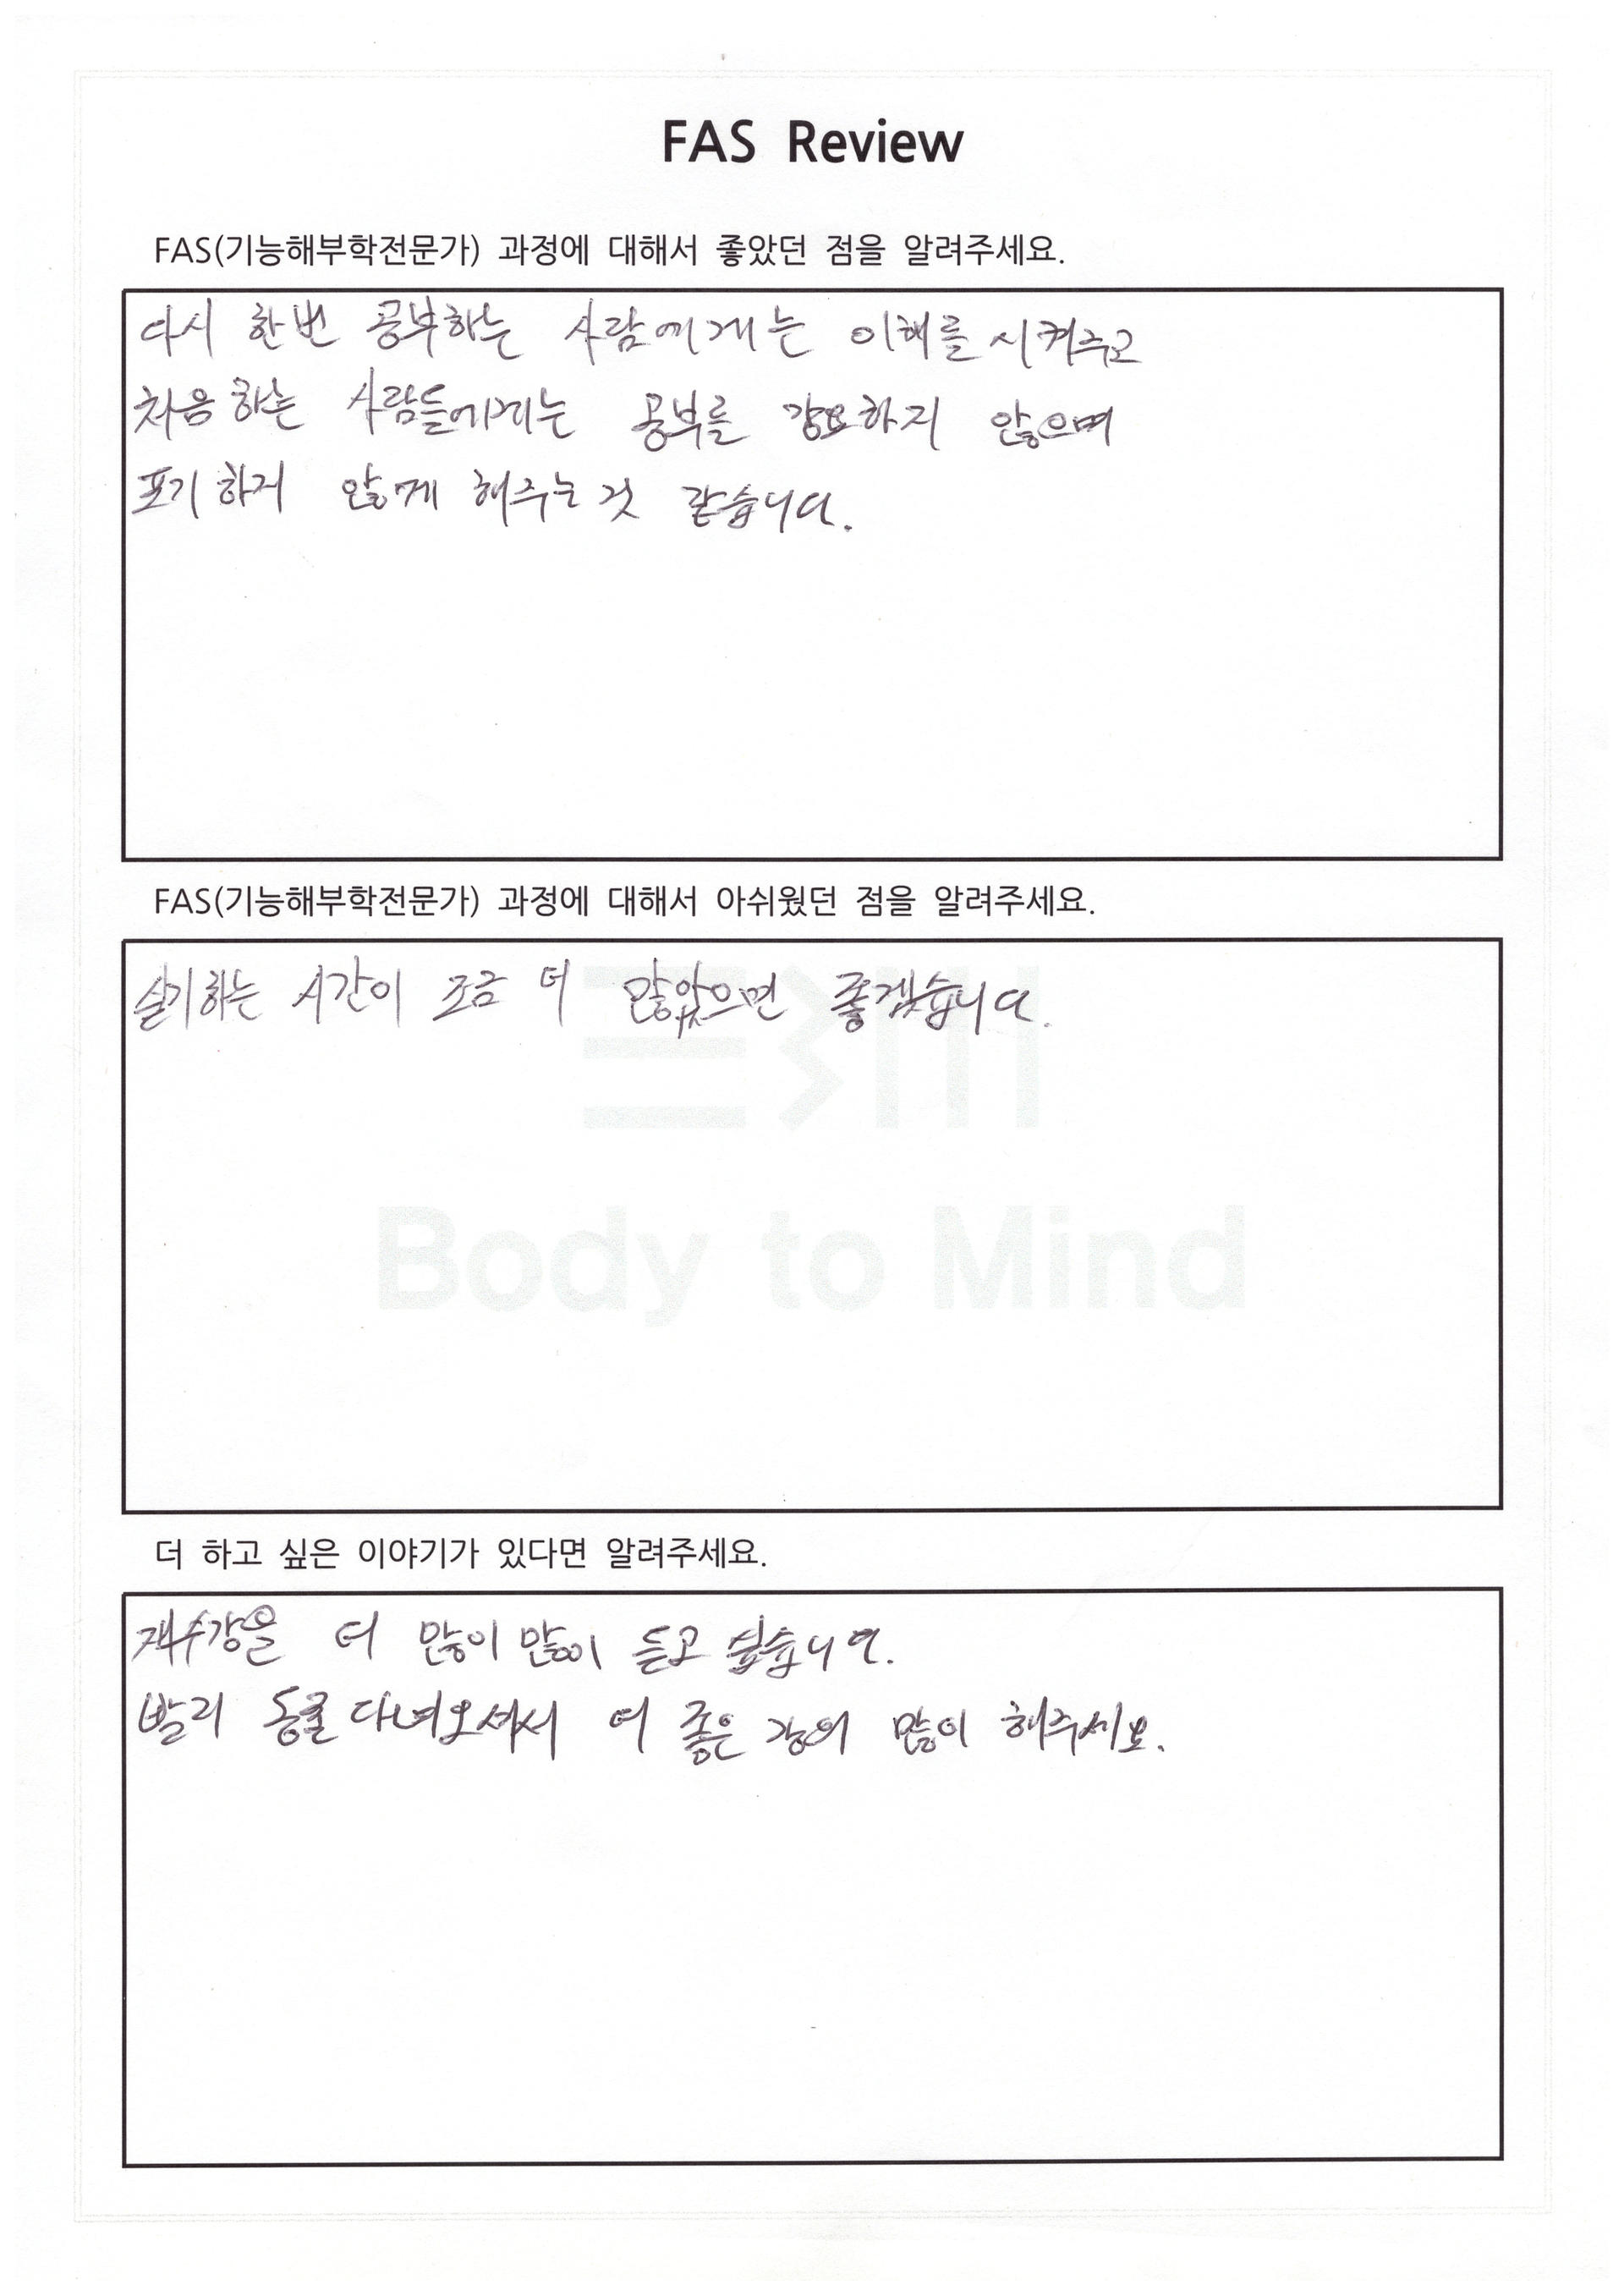 FAS Review
FAS(기능해부학전문가) 과정에 대해서 좋았던 점을 알려주세요.
다시 한번 공부하는 사람에게는 이해를 시켜주고
처음 하는 사람들에게는 공부를 강요하지 않으며
포기하지 않게 해주는 것 같습니다.
FAS(기능해부학전문가) 과정에 대해서 아쉬웠던 점을 알려주세요.
실기하는 시간이 조금 더 많았으면 좋겠습니다.
Body to Mind
더 하고 싶은 이야기가 있다면 알려주세요.
재수강을 더 많이 많이 듣고 싶습니다.
발리 다녀오셔서 더 좋은 강의 많이 해주세요.